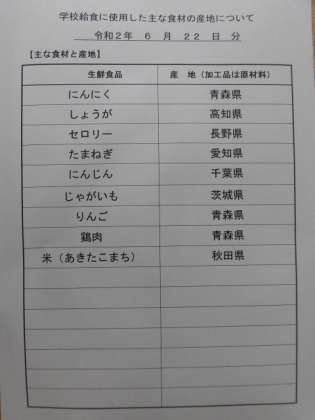 学校給食に使用した主な食材の産地について
令和2年 6 月 22 日 分
【主な食材と産地】
生鮮食品 産 地（加工品は原材料）
にんにく 青森県
しょうが 高知県
セロリー 長野県
たまねぎ 愛知県
にんじん 千葉県
じゃがいも 茨城県
りんご 青森県
鶏肉 青森県
米（あきたこまち） 秋田県